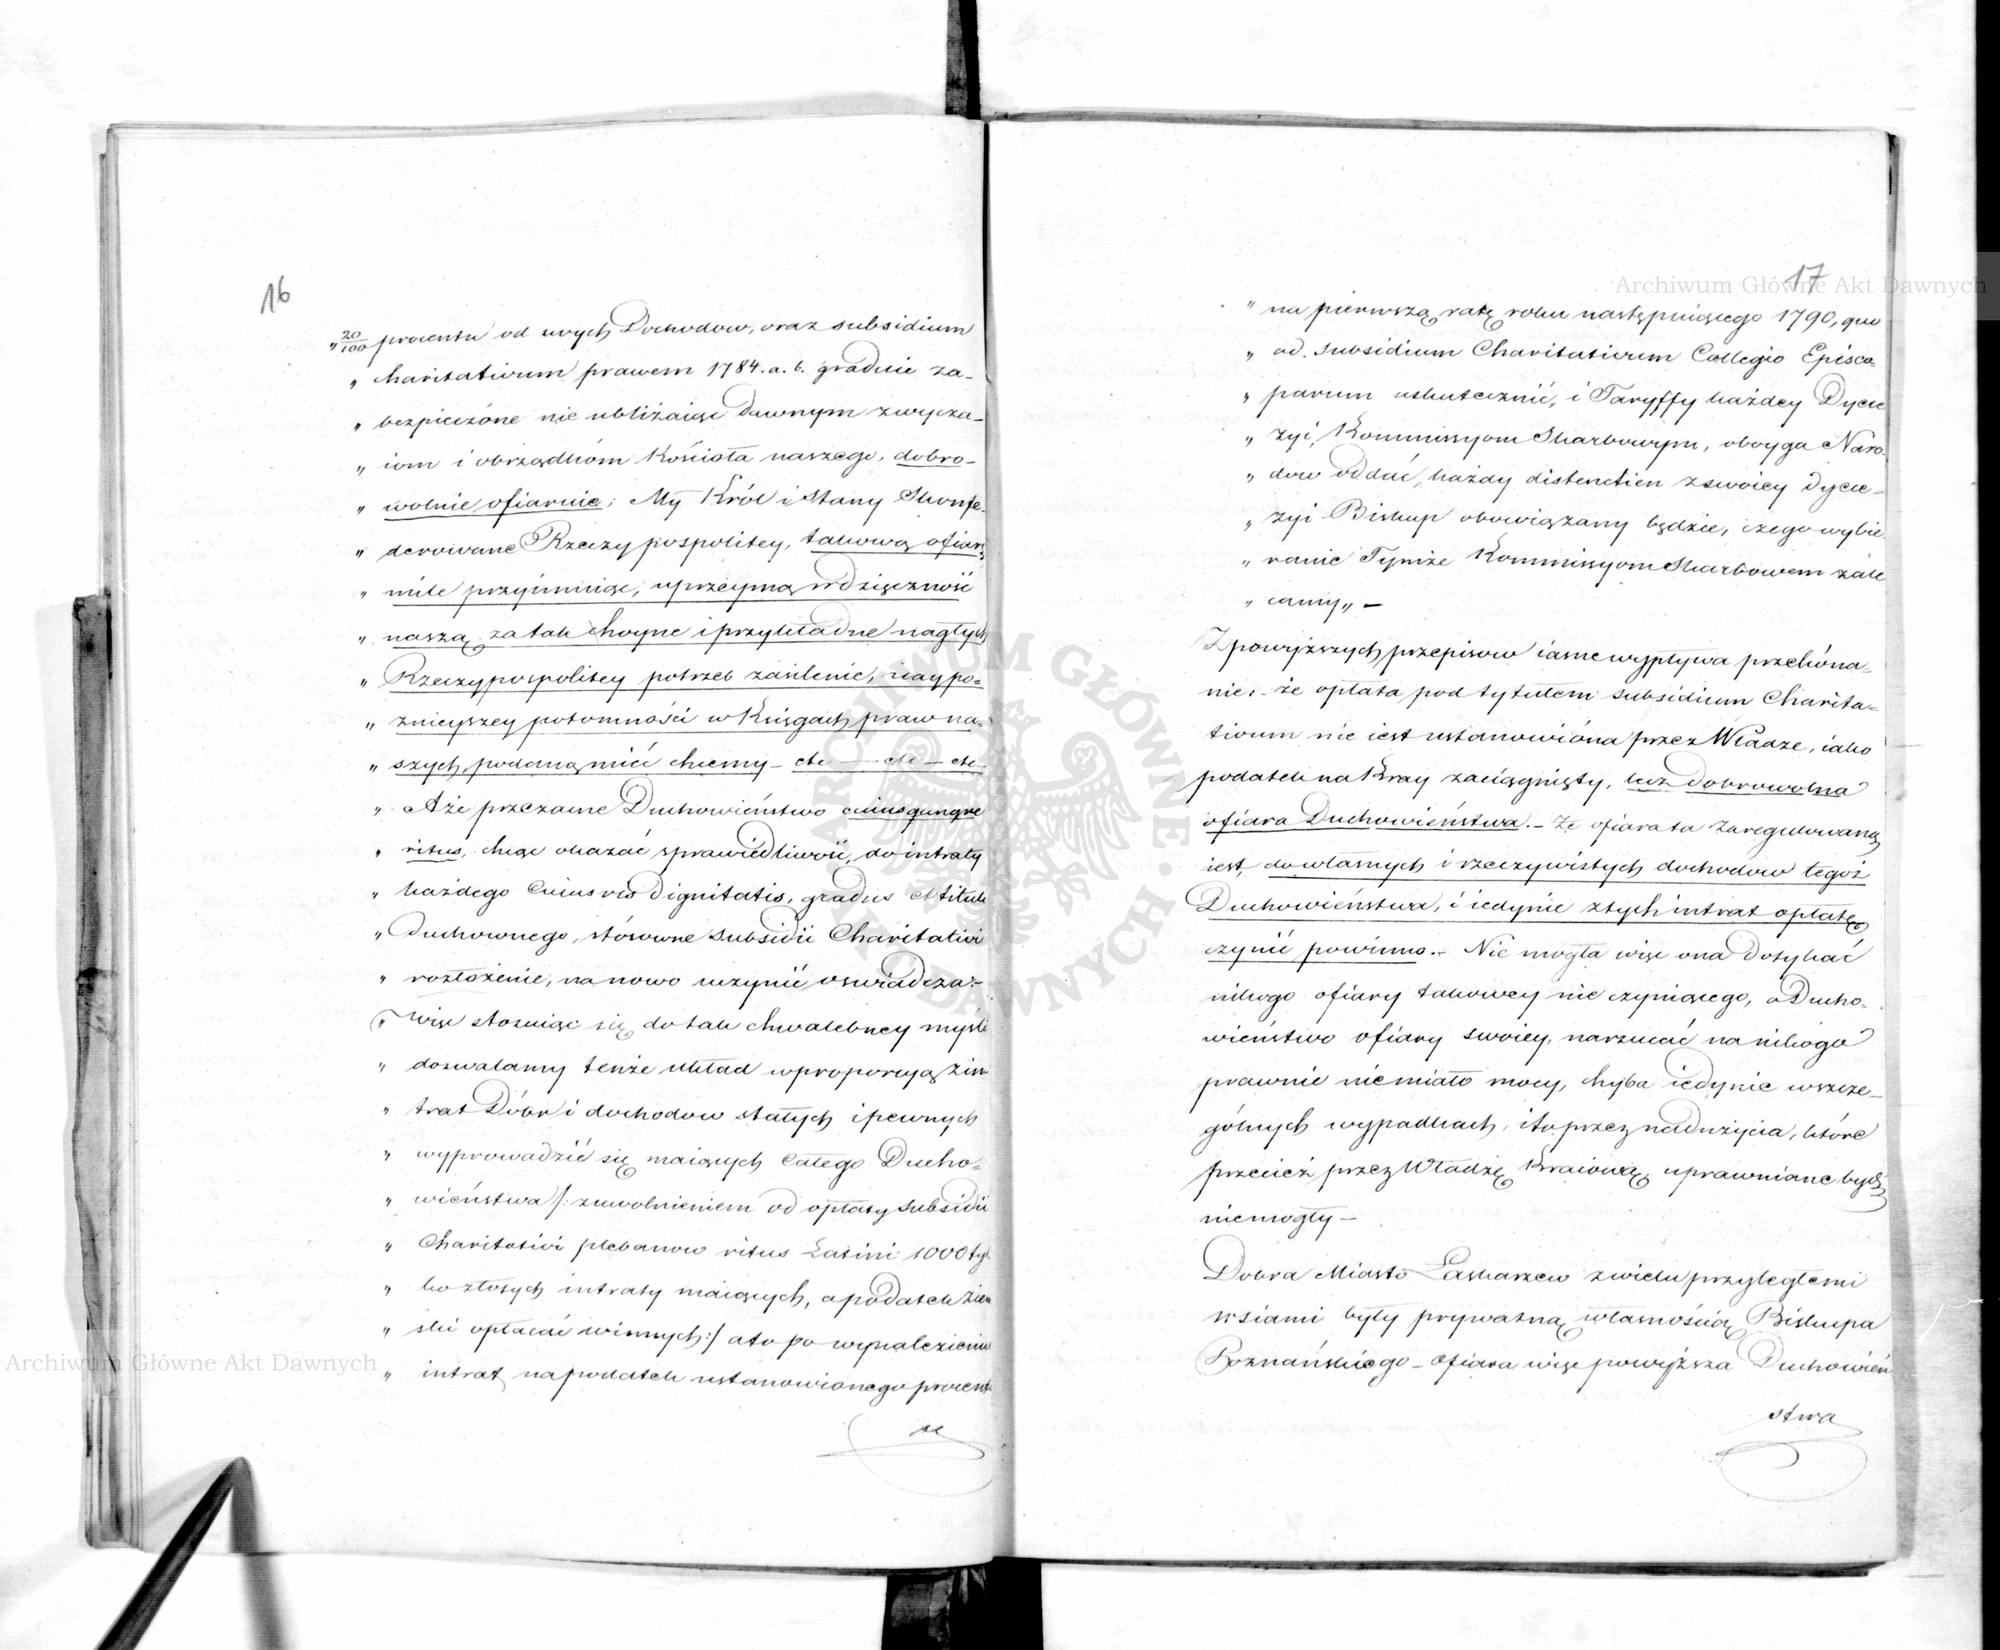 16
„ 20/100 procentu od swych Dochodow, oraz subsidium
„ charitativum prawem 1784. a. 6. gradnie za-
„ bezpieczóne nie ubliżaiąc dawnym zwycza-
„ iom i obrządkóm Kościoła naszego, dobro-
„ wolnie ofiaruie; My Król i Stany Skonfe-
„ derowane Rzeczy pospolitey, takową ofiarę
„ mile przyimuiąc, uprzeymą wdzięczność
„ naszą, za tak hoyne i przykładne nagłych
„ Rzeczypospolitey potrzeb zasilenie, naypo-
„ znieyszey potomności w Księgach praw na-
„ szych, podaną mieć chcemy – etc — etc — etc
„ A że przezacne Duchowieństwo cuiusqunque
„ ritus, chcąc okazać sprawiedliwość, do intraty
„ każdego Cuiusvis Dignitatis, gradus et tituli
„ Duchownego, stósowne Subsidii Charitativi
„ rozłożenie, na nowo uczynić oswiadcza:-
„ Więc stosuiąc się do tak chwalebney myśli
„ dozwalamy tenże układ w proporcyą z in
„ trat Dóbr i dochodow stałych i pewnych
„ wyprowadzić się maiących Całego Ducho-
„ wieństwa /: z uwolnieniem od opłaty Subsidii
„ Charitativi plebanow ritus Latini 1000 tyl
„ ko złotych intraty maiących, a podatek Ziem
„ ski opłacać winnych :/ a to po wynalezieniu
„ intrat, na podatek ustanowionego procen
tu
Archiwum Główne Akt Dawnych
17
Archiwum Główne Akt Dawnych
„ na pierwszą ratę roku następuiącego 1790, quo
„ ad. Subsidium Charitativum Collegio Episco-
„ parum uskutecznić, i Taryffy każdey Dyece
„ zyi, Kommissyom Skarbowym, oboyga Naro-
„ dow oddać, każdy distenctien z swoiey Dyece-
„ zyi Biskup obowiązany będzie, czego wybie
„ ranie Tymże Kommissyom Skarbowem zale
„ camy „ –
Z powyższych przepisow iasne wypływa przekóna-
nie: - że opłata pod tytułem Subsidium Charita-
tivum nie iest ustanowióna przez Władze, iako
podatek na Kray zaciągnięty, lecz dobrowolna
ofiara Duchowieństwa. – Że ofiara ta zaregulowaną
iest, do własnych i rzeczywistych dochodow tegoż
Duchowieństwa, i iedynie z tych intrat opłatę
czynić powinno. – Nie mogła więc ona dotykać
nikogo ofiary takowey nie czyniącego, a Ducho-
wieństwo ofiary swoiey, narzucać na nikogo
prawnie nie miało mocy, chyba iedynie w szcze-
gólnych wypadkach, i to przez nadużycia, które
przecież przez Władzę Kraiową, uprawniane bydź
niemogły –
Dobra Miasto Łaskarzew z wielu przyległemi
wsiami były prywatną własnością Biskupa
Poznańskiego – Ofiara więc powyższa Duchowień
stwa
ARCHIWUM GŁÓWNE AKT DAWNYCH